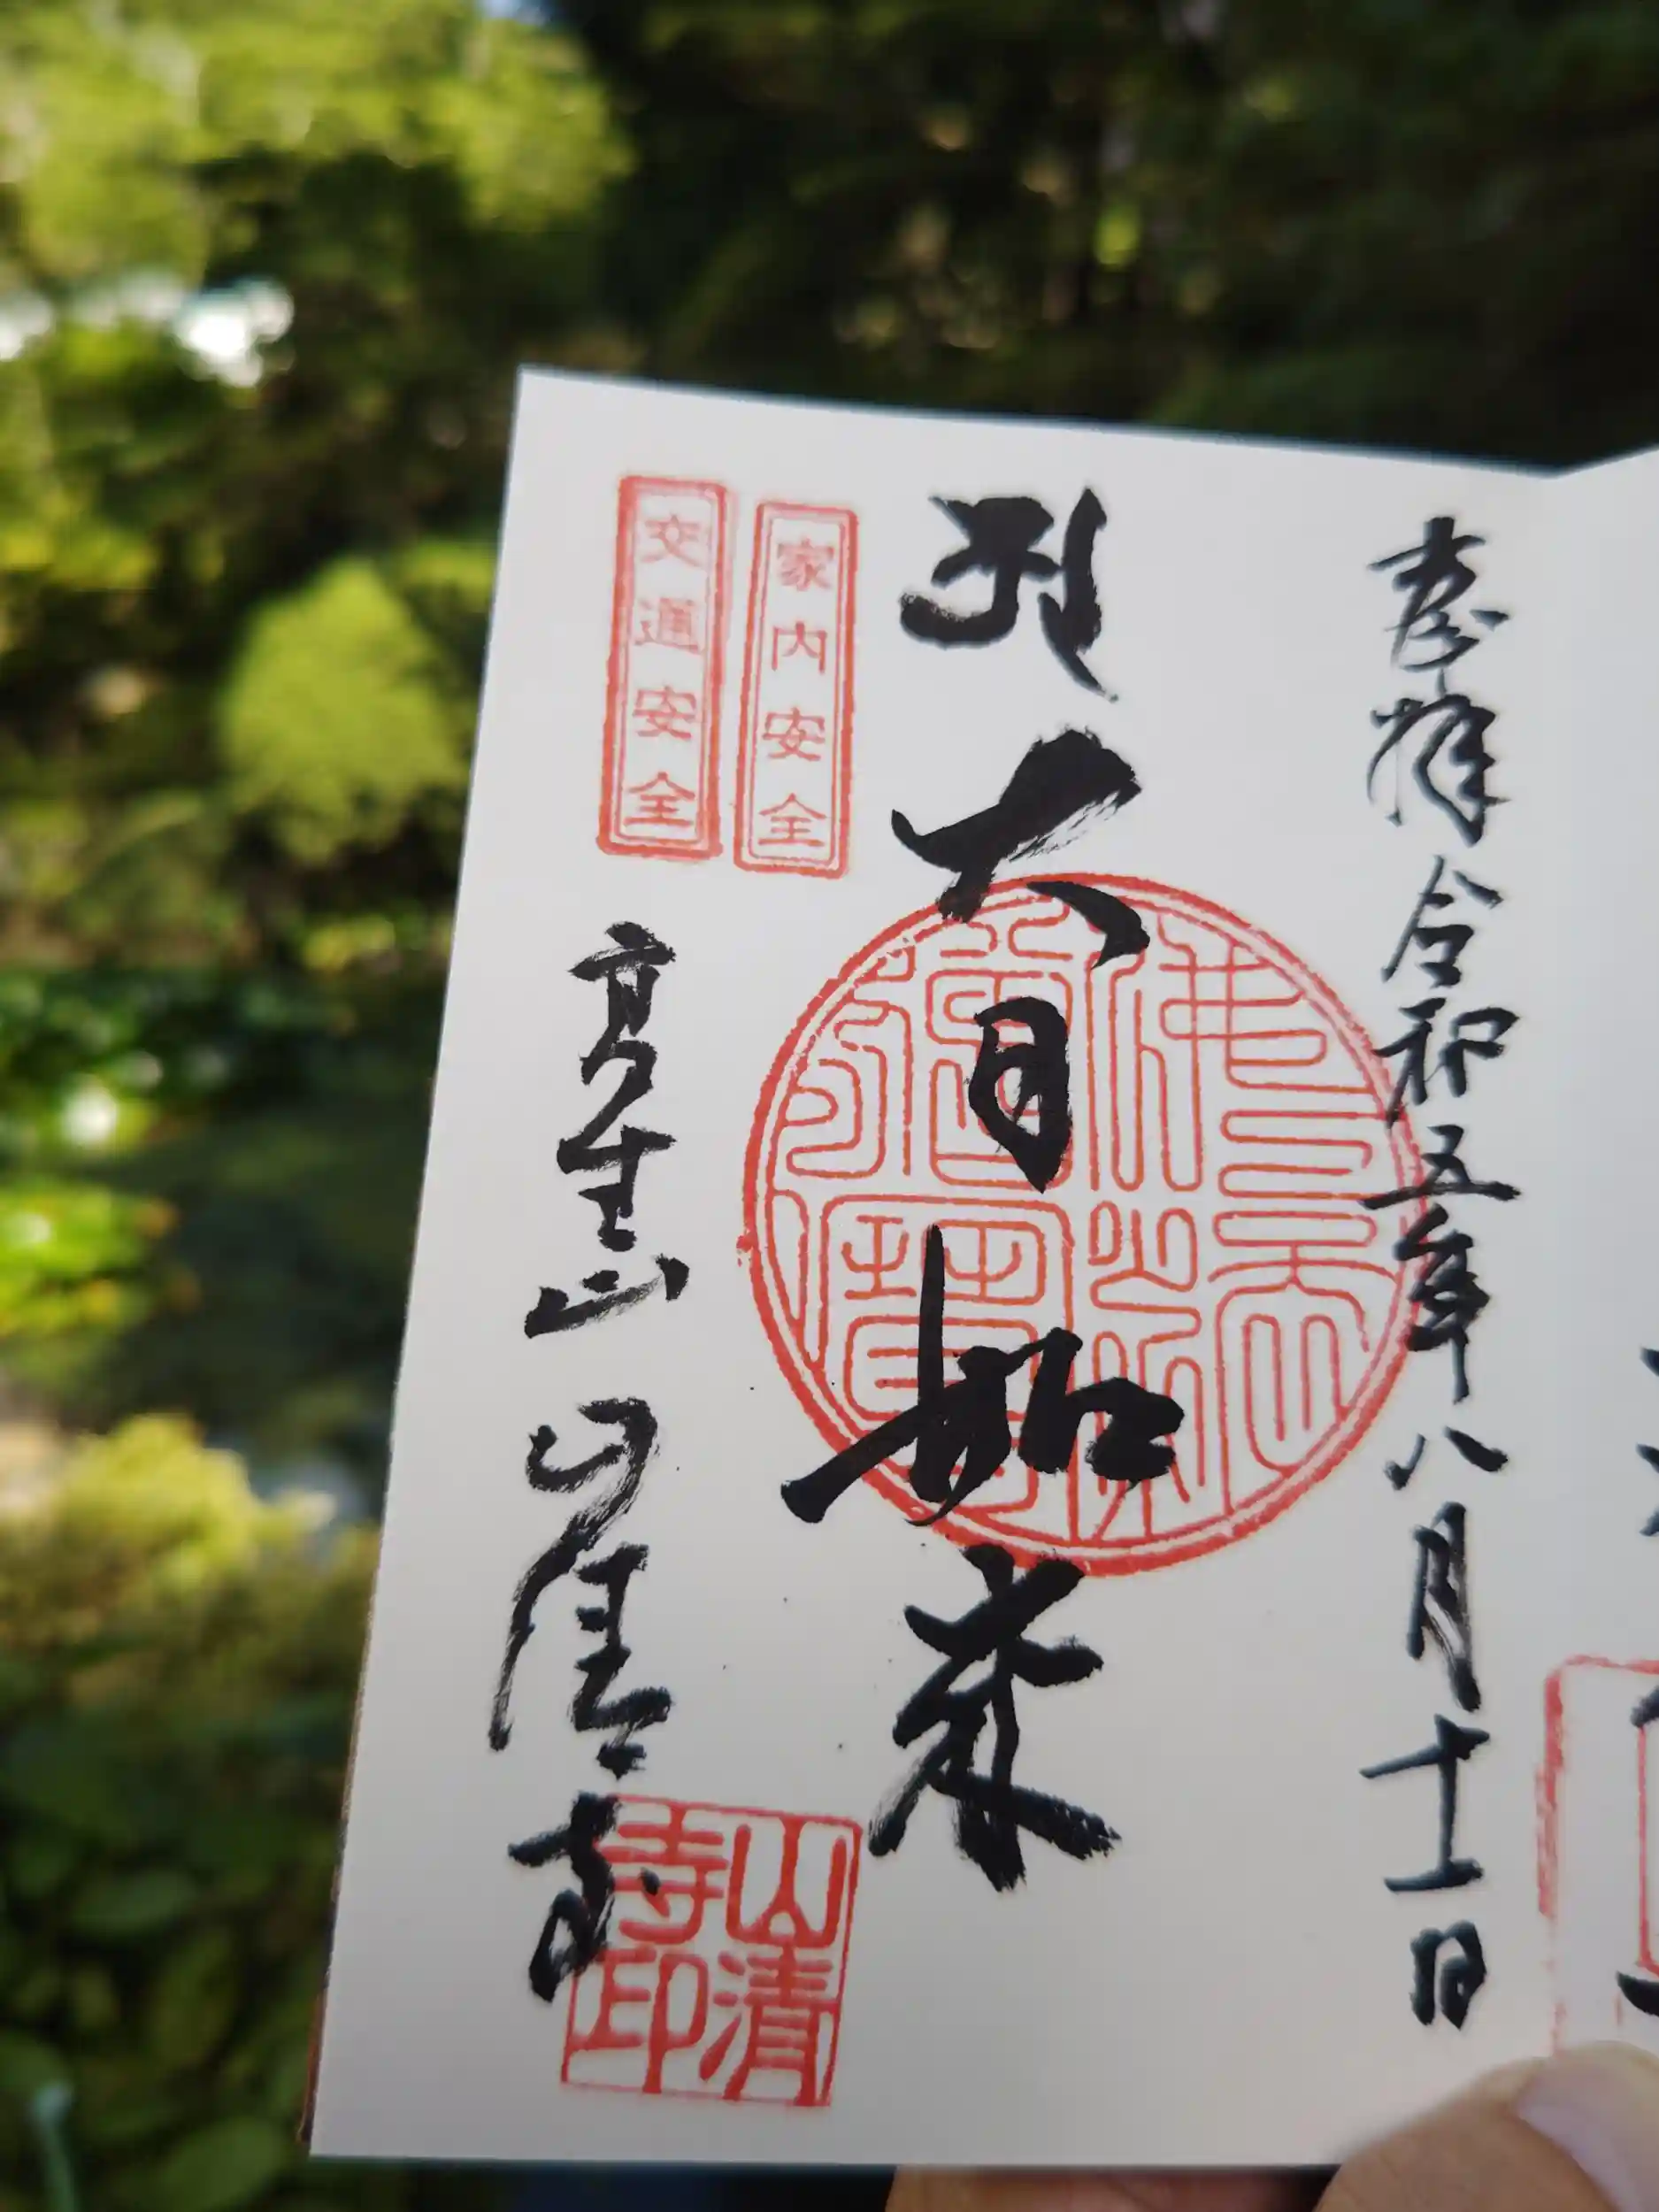 奉拝 令和五年八月十一日
大日如来
佛法僧寶
家内安全
交通安全
山清寺
山清寺印